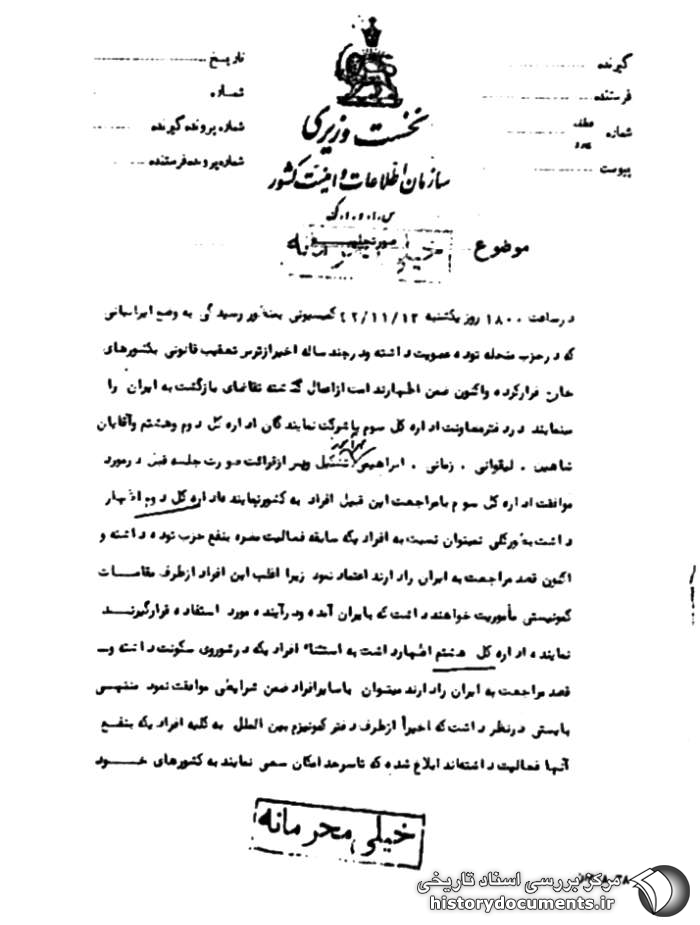 گیرنده
فرستنده
شماره
عطف
پیوست
تاریخ
شماره
شماره پرونده گیرنده
شماره پرونده فرستنده
نخست وزیری
سازمان اطلاعات و امنیت کشور
س.ا.و.ا.ک
موضوع صورتجلسه
خیلی محرمانه
در ساعت ۱۸۰۰ روز یکشنبه ۴۲/۱۱/۱۳ کمیسیونی بمنظور رسیدگی به وضع ایرانیانی
که در حزب منحله توده عضویت داشته و در چند ساله اخیر از ترس تعقیب قانونی بکشورهای
خارج فرار کرده و اکنون ضمن اظهار ندامت از اعمال گذشته تقاضای بازگشت به ایران را
مینمایند در دفتر معاونت اداره کل سوم با شرکت نمایندگان اداره کل دوم و هشتم و آقایان
شاهین . لیقوانی . زمانی . ابراهیمی تشکیل و پس از قرائت صورت جلسه قبل در مورد
موافقت اداره کل سوم با مراجعت این قبیل افراد به کشور نماینده اداره کل دوم اظهار
داشت بطور کلی نمیتوان نسبت به افرادیکه سابقه فعالیت مضره بنفع حزب توده داشته و
اکنون قصد مراجعت به ایران را دارند اعتماد نمود زیرا اغلب این افراد از طرف مقامات
کمونیستی مأموریت خواهند داشت که بایران آمده و در آینده مورد استفاده قرار گیرند
نماینده اداره کل هشتم اظهار داشت به استثناء افرادیکه در شوروی سکونت داشته و
قصد مراجعت به ایران را دارند میتوان با سایر افراد ضمن شرایطی موافقت نمود منتهی
بایستی در نظر داشت که اخیراً از طرف دفتر کمونیزم بین الملل به کلیه افرادیکه بنفع
آنها فعالیت داشته‌اند ابلاغ شده که تا سرحد امکان سعی نمایند به کشورهای خود
خیلی محرمانه
مرکز بررسی اسناد تاریخی
historydocuments.ir